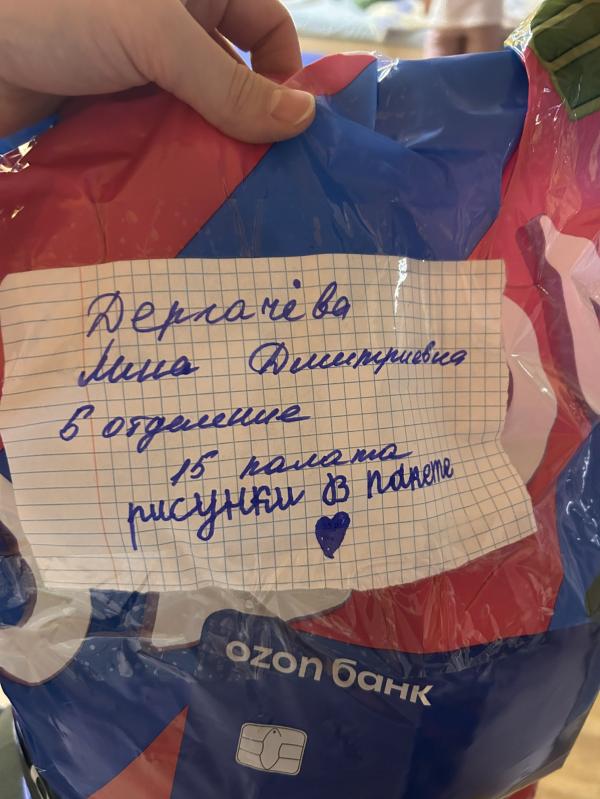 Дергачёва
Лина Дмитриевна
6 отделение
15 палата
рисунки в пакете
ozon банк